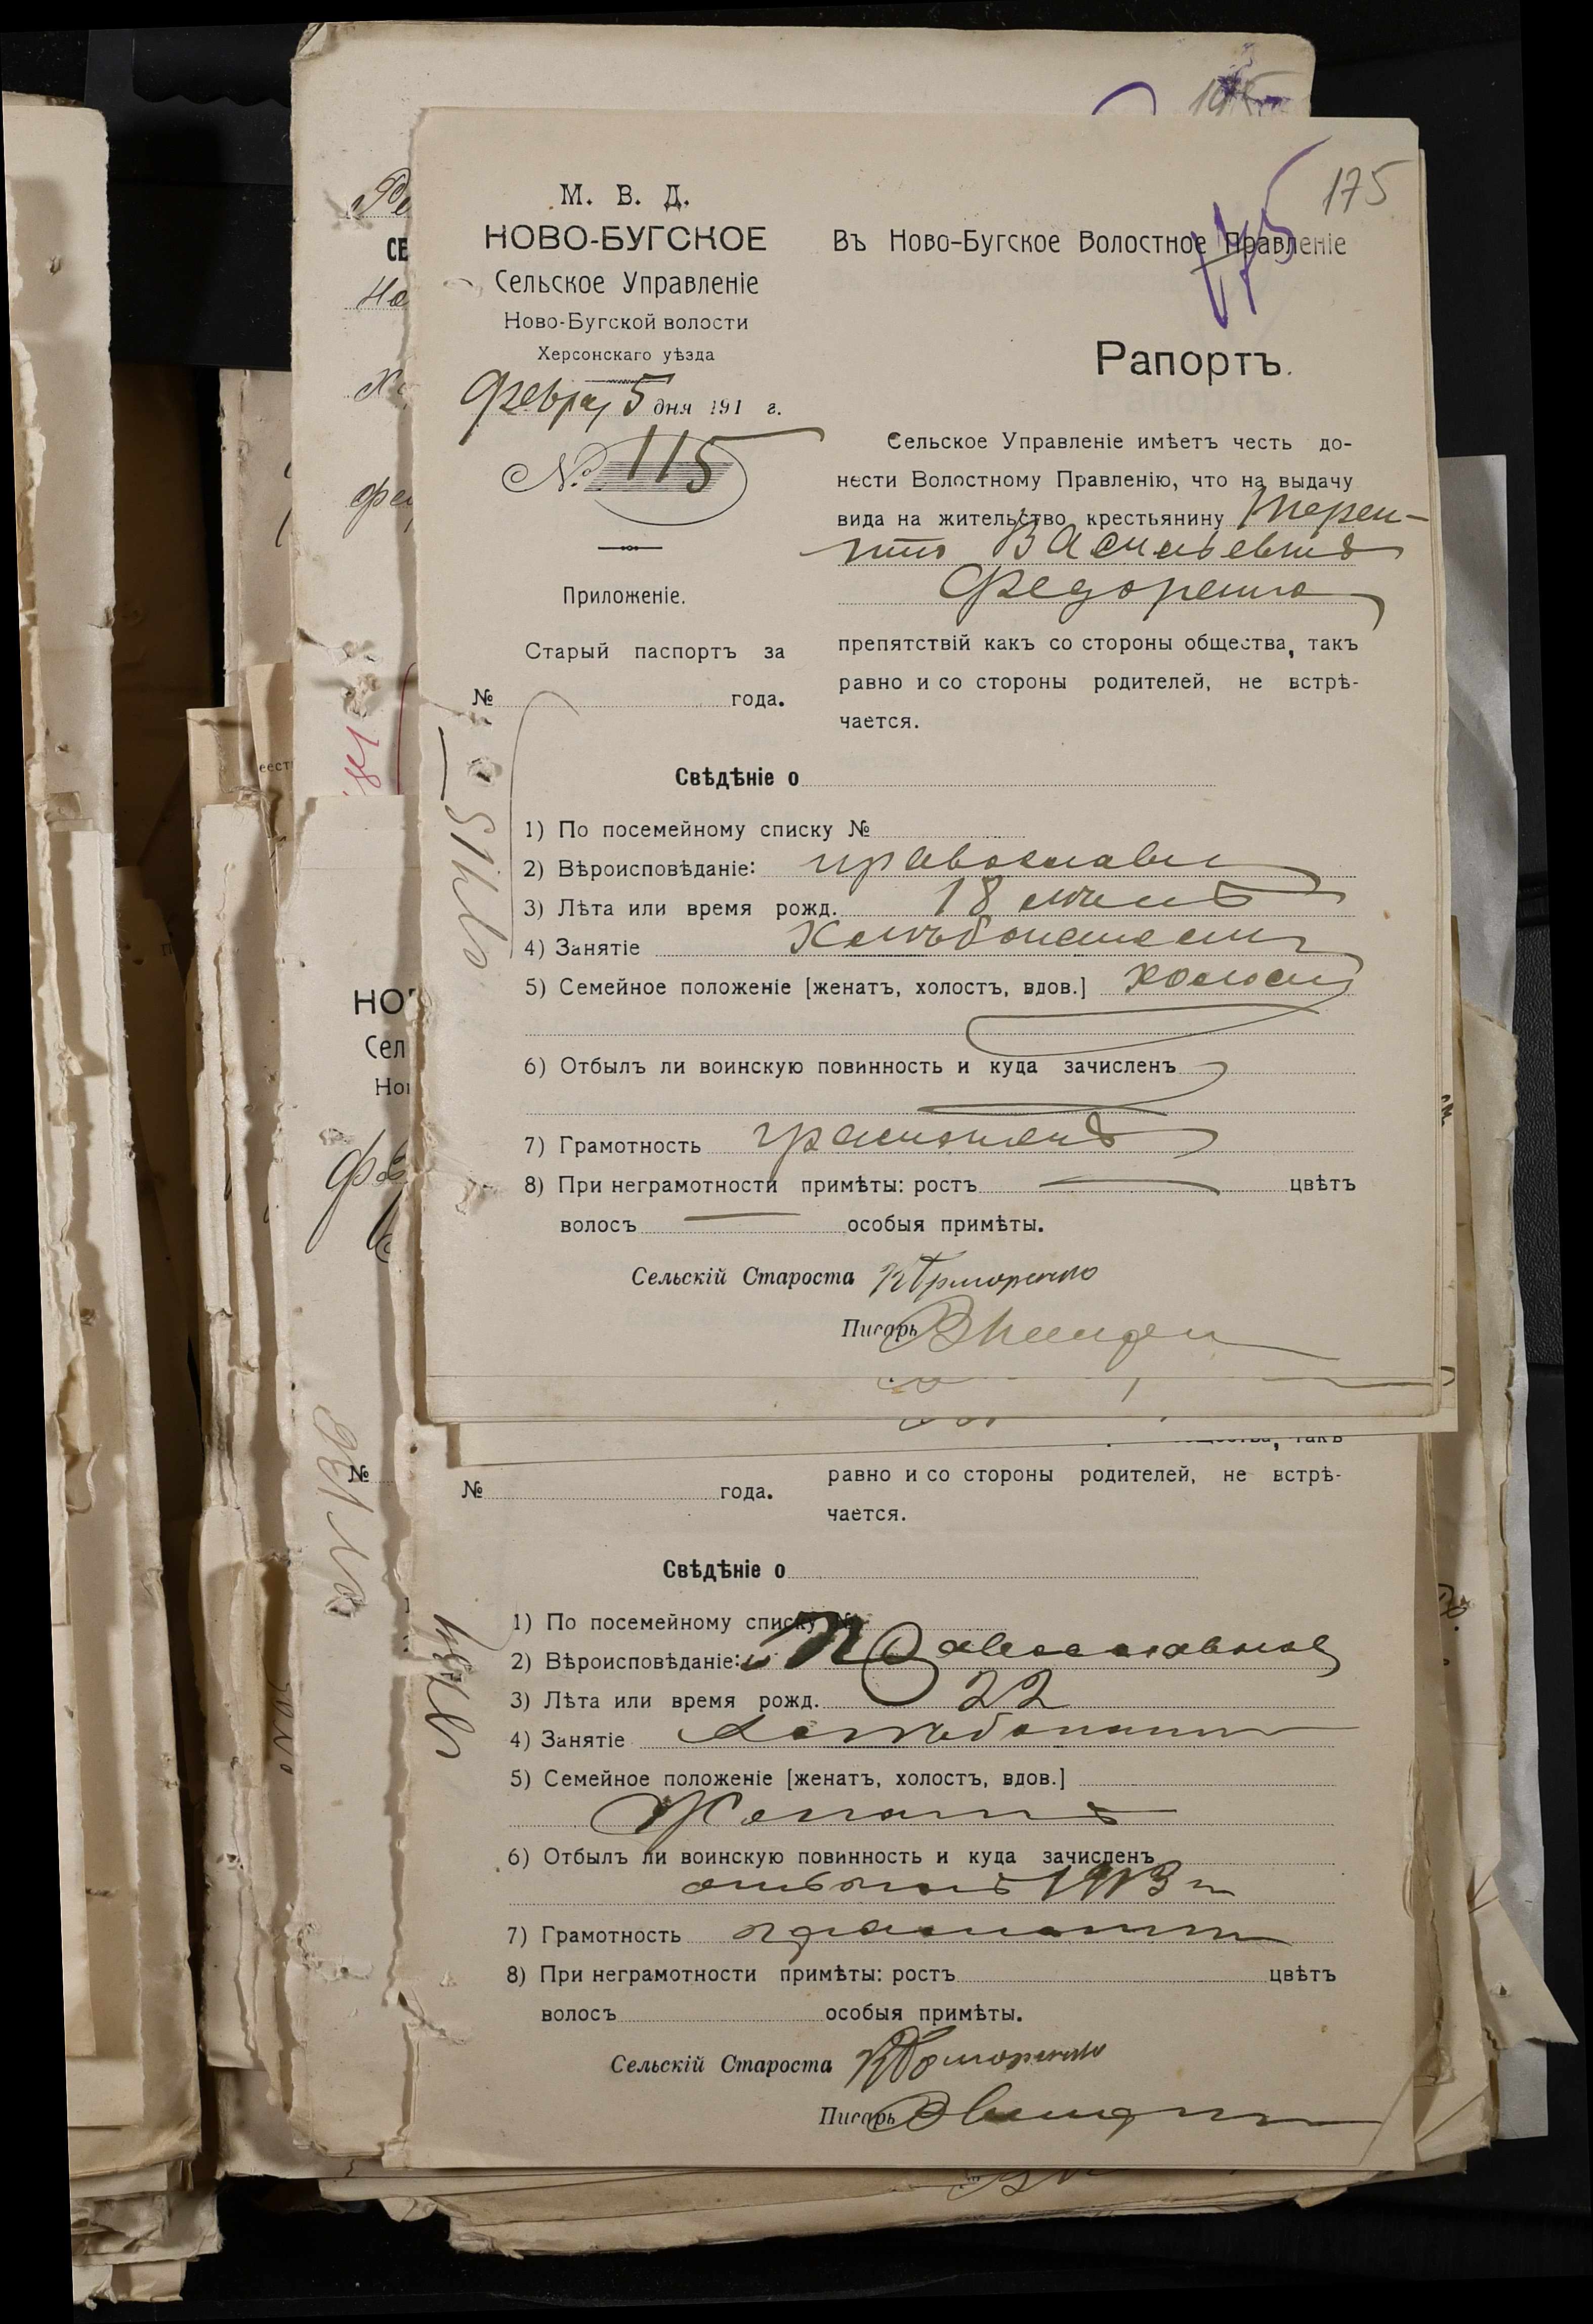 175
М. В. Д.
НОВО-БУГСКОЕ
Сельское Управленіе
Ново-Бугской волости
Херсонскаго уѣзда
Февра 5 дня 191 г.
№ 115
Приложеніе.
Старый паспортъ за
№ года.
Въ Ново-Бугское Волостное Правленіе
175
Рапортъ.
Сельское Управленіе имѣетъ честь до-
нести Волостному Правленію, что на выдачу
вида на жительство крестьянину Терен-
тію Васильевичу
Федоренко
препятствій какъ со стороны общества, такъ
равно и со стороны родителей, не встрѣ-
чается.
Свѣдѣніе о
1) По посемейному списку №
2) Вѣроисповѣданіе: православн
3) Лѣта или время рожд. 18 лѣтъ
4) Занятіе Хлѣбопашецъ
5) Семейное положеніе [женатъ, холостъ, вдов.] холост
6) Отбылъ ли воинскую повинность и куда зачисленъ
7) Грамотность грамотенъ
8) При неграмотности примѣты: ростъ цвѣтъ
волосъ особыя примѣты.
Сельскій Староста
Писарь
такъ
равно и со стороны родителей, не встрѣ-
№ года.
чается.
Свѣдѣніе о
1) По посемейному списку №
2) Вѣроисповѣданіе: Православное
3) Лѣта или время рожд. 22
4) Занятіе хлѣбопаш
5) Семейное положеніе [женатъ, холостъ, вдов.]
Женатъ
6) Отбылъ ли воинскую повинность и куда зачисленъ
отбылъ 1913 г
7) Грамотность грамотн
8) При неграмотности примѣты: ростъ цвѣтъ
волосъ особыя примѣты.
Сельскій Староста
Писарь
СЕ
НО
Сел
№